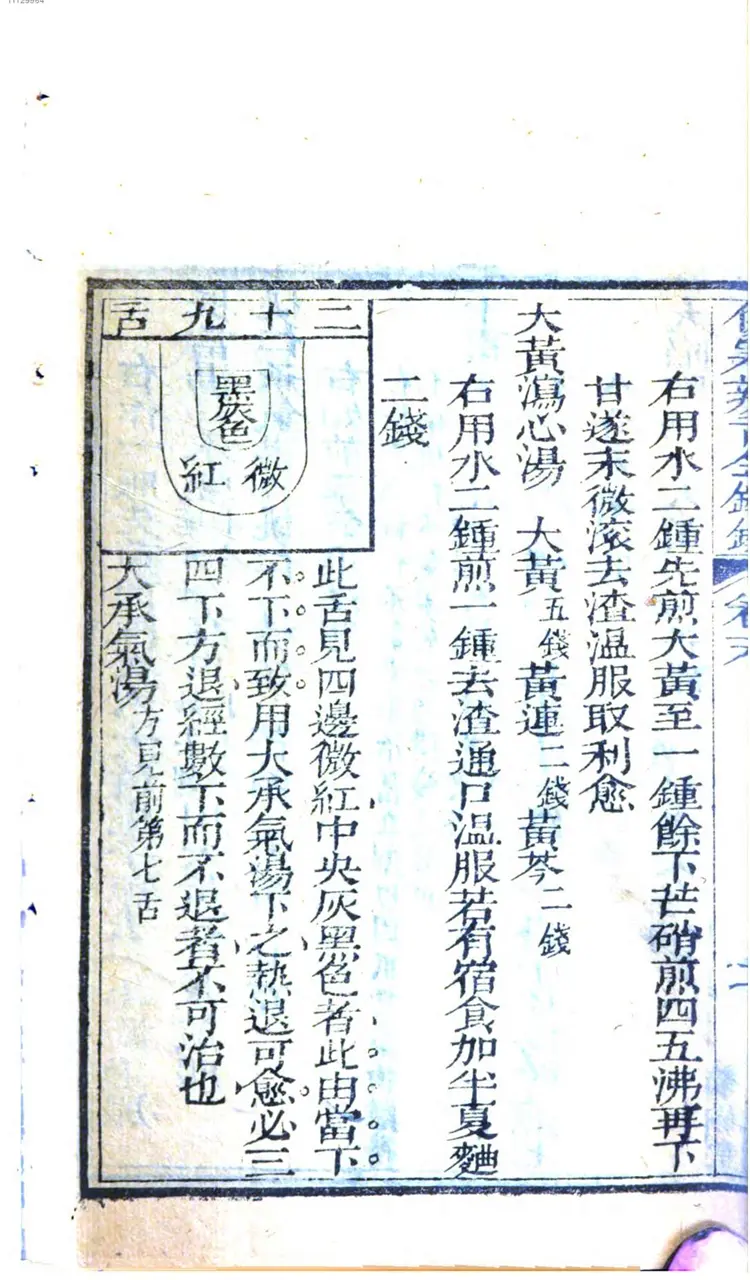 11129964
右用水二鍾先煎大黃至一鍾餘下芒硝煎四五沸再下
甘遂末微滚去渣温服取利愈
大黃瀉心湯 大黃五錢黃連二錢黃芩二錢
右用水二鍾煎一鍾去渣通口温服若有宿食加半夏麯
二錢
二十九舌
黑灰色
微紅
此舌見四邊微紅中央灰黑色者此由當下
不下而致用大承氣湯下之熱退可愈必三
四下方退經數下而不退者不可治也
大承氣湯方見前第七舌